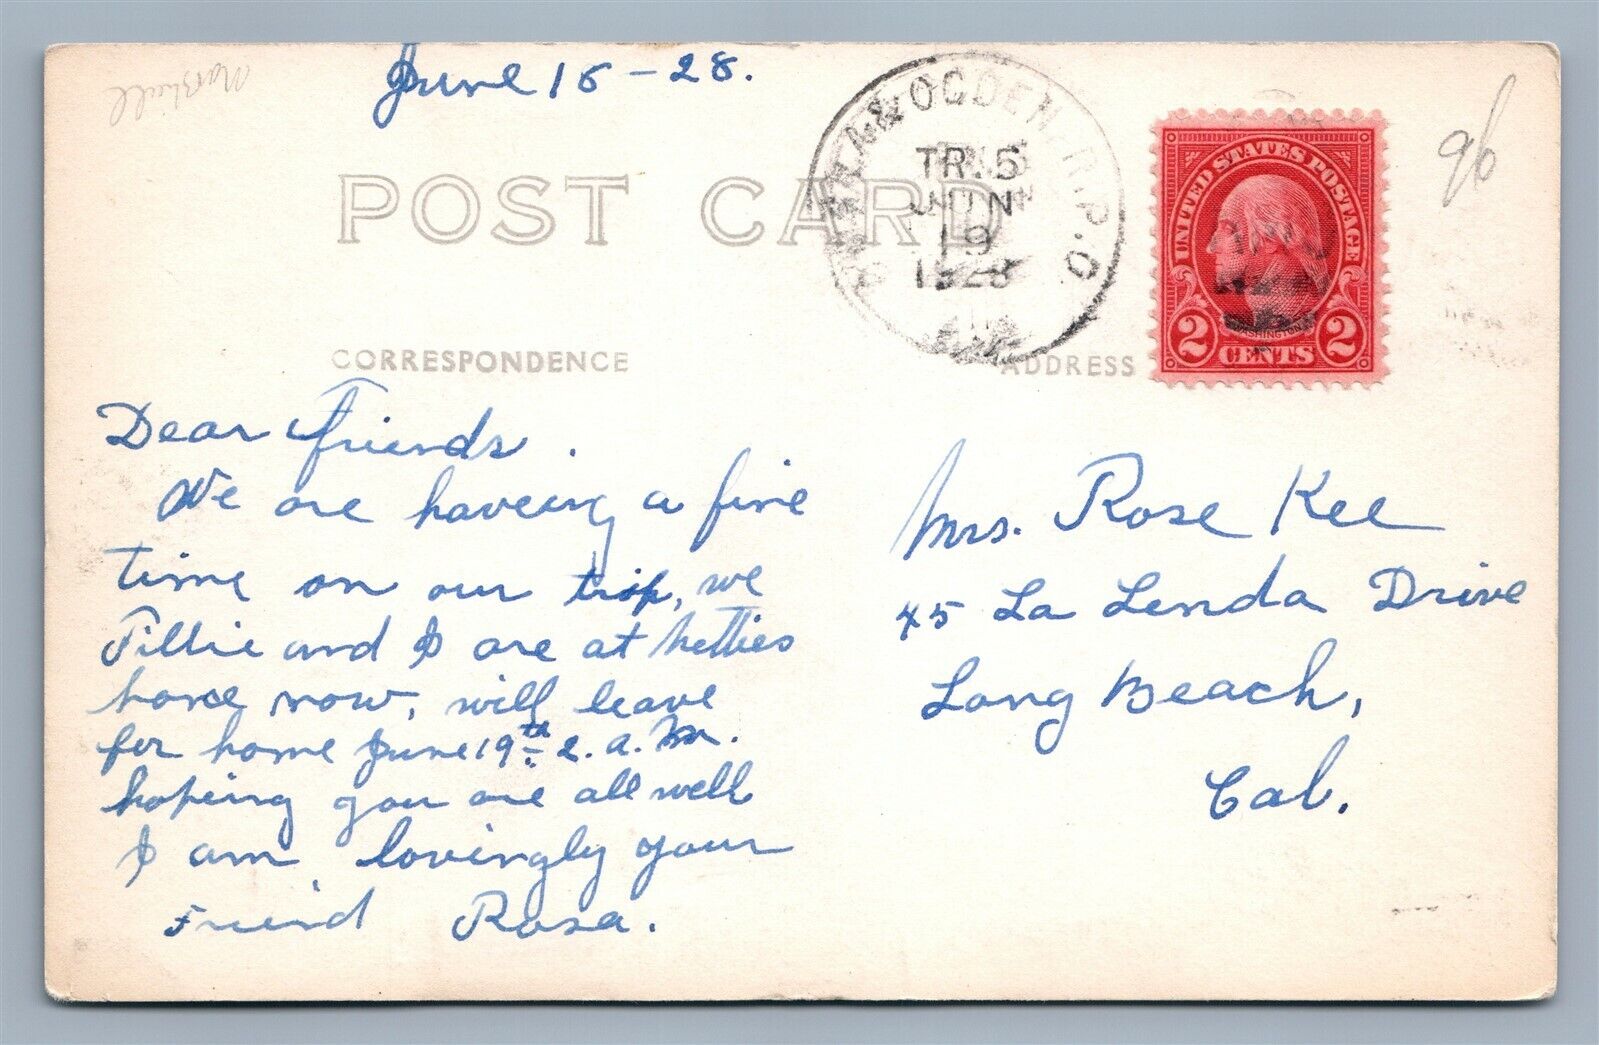 June 18-28.
POST CARD
OMAHA & OGDEN. R.P.O.
TR.5
JUN
19
1928
UNITED STATES POSTAGE
WASHINGTON
2 CENTS 2
96
CORRESPONDENCE
ADDRESS
Dear Friends.
We are haveing a fine
time on our trip, we
Tillie and I are at Netties
home now, will leave
for home June 19th 2. a. m.
hoping you are all well
I am lovingly your
Friend Rosa.
Mrs. Rose Kee
45 La Lenda Drive
Long Beach,
Cal.